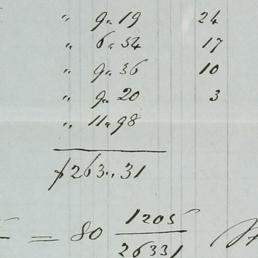 " 9.. 19 24
" 6.. 54 17
" 9.. 36 10
" 9.. 20 3
" 11.. 98
ƒ263.. 31
= 80 1205
26331